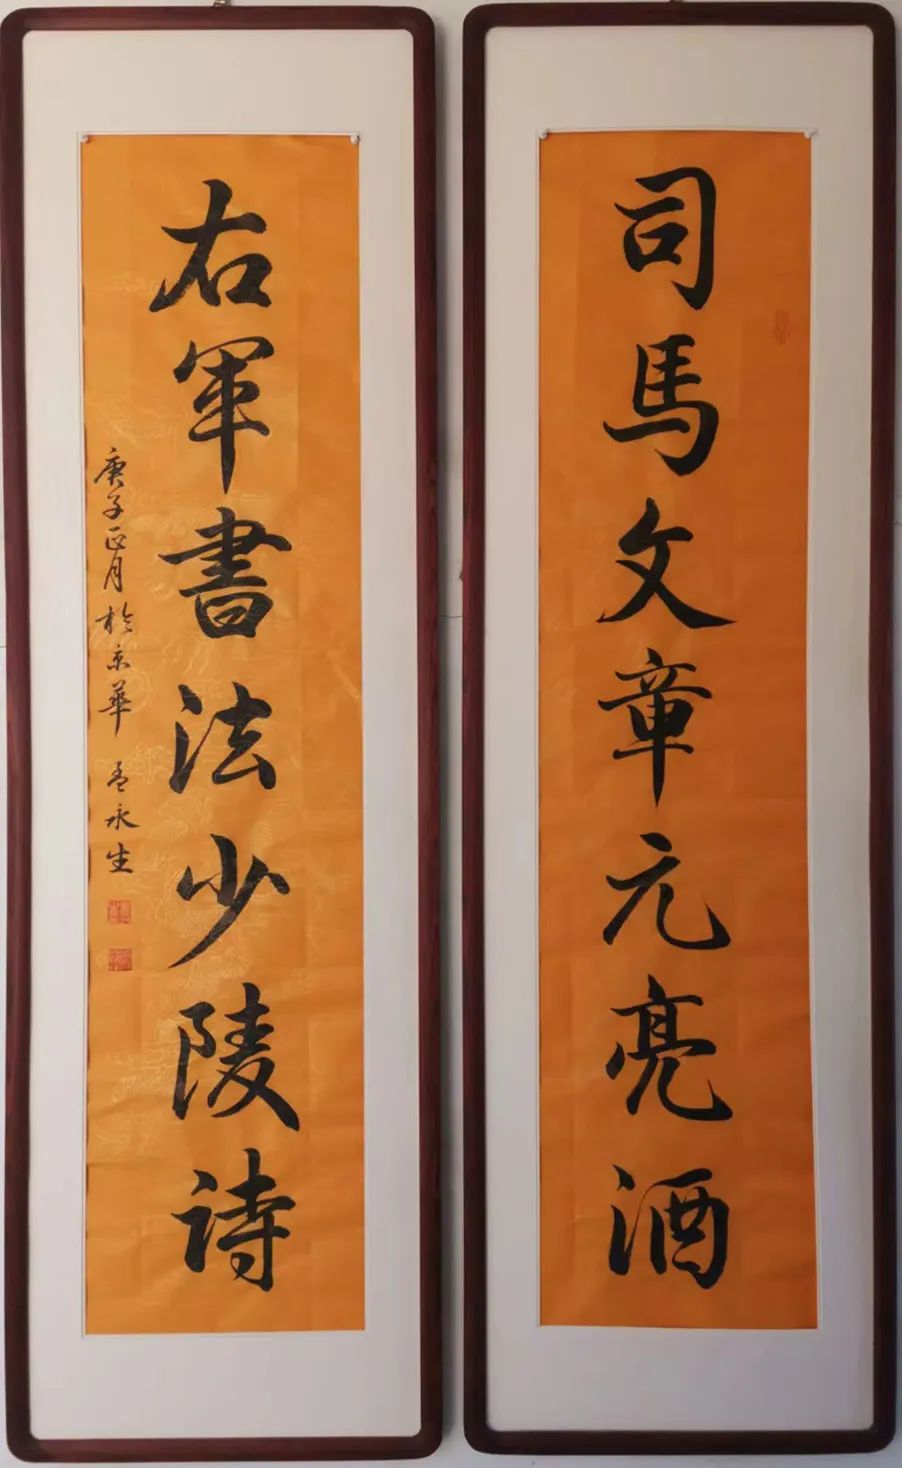 司馬文章元亮酒
右軍書法少陵詩
庚子正月於京華 孟永生